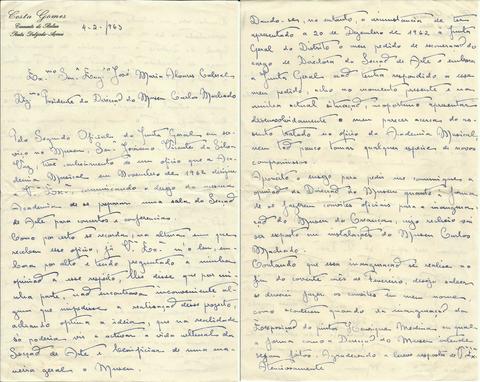 Costa Gomes
Ponta Delgada - Açores
4-2-/963
Ex.mo Snr. Eng.º José Maria Álvares Cabral
Dig.mo Presidente da Direcção do Museu Carlos Machado
Pelo Segundo Oficial da Junta Geral em
viço no Museu, Snr. Jacinto Vicente da Silva
Vaz, tive conhecimento de um ofício que a Aca
demia Musical em Novembro de 1962 dirigiu
a V. Ex.ª comunicando o desejo da mesma
Academia de se preparar uma sala da Secção
de Arte para concertos e conferências.
Como por certo se recorda, na altura em que
recebeu esse ofício, já V. Ex.ª m'o leu, em-
bora por alto e tendo perguntado a minha
opinião a esse respeito, lhe disse que por mi-
nha parte, não encontrava inconveniente al-
gum que impedisse a realização desse projecto,
achando óptima a ideia, que na realidade
só poderia vir a activar a vida cultural da
Secção de Arte e beneficiar de uma ma-
neira geral o Museu.
Dando-se, no entanto, a circunstância de ter
apresentado a 20 de Dezembro de 1962 à Junta
Geral do Distrito o meu pedido de exoneração do
cargo de Director da Secção de Arte e embora
a Junta Geral, nada tenha respondido a esse
meu pedido, acho no momento presente e na
minha actual situação, inoportuno apresentar
desenvolvidamente o meu parecer acerca do as-
sunto tratado no ofício da Academia Musical,
nem tão pouco tomar qualquer espécie de novos
compromissos.
Aproveito o ensejo para pedir me comuniquem a
opinião da Direcção do Museu quanto à forma
de se fazerem convites oficiais para a inaugura-
ção do Museu
ser exposto em instalações do Museu Carlos
Machado.
Contando que essa inauguração se realize no
fim do corrente mês de Fevereiro, desejo saber se
se devem fazer os convites em meu nome,
como aconteceu quando da inauguração da
Exposição do pintor Henrique Medina ou qual
a forma como a Direcção do Museu entende
sejam feitos. Agradecendo a breve resposta de V. Ex.ª
Atenciosamente